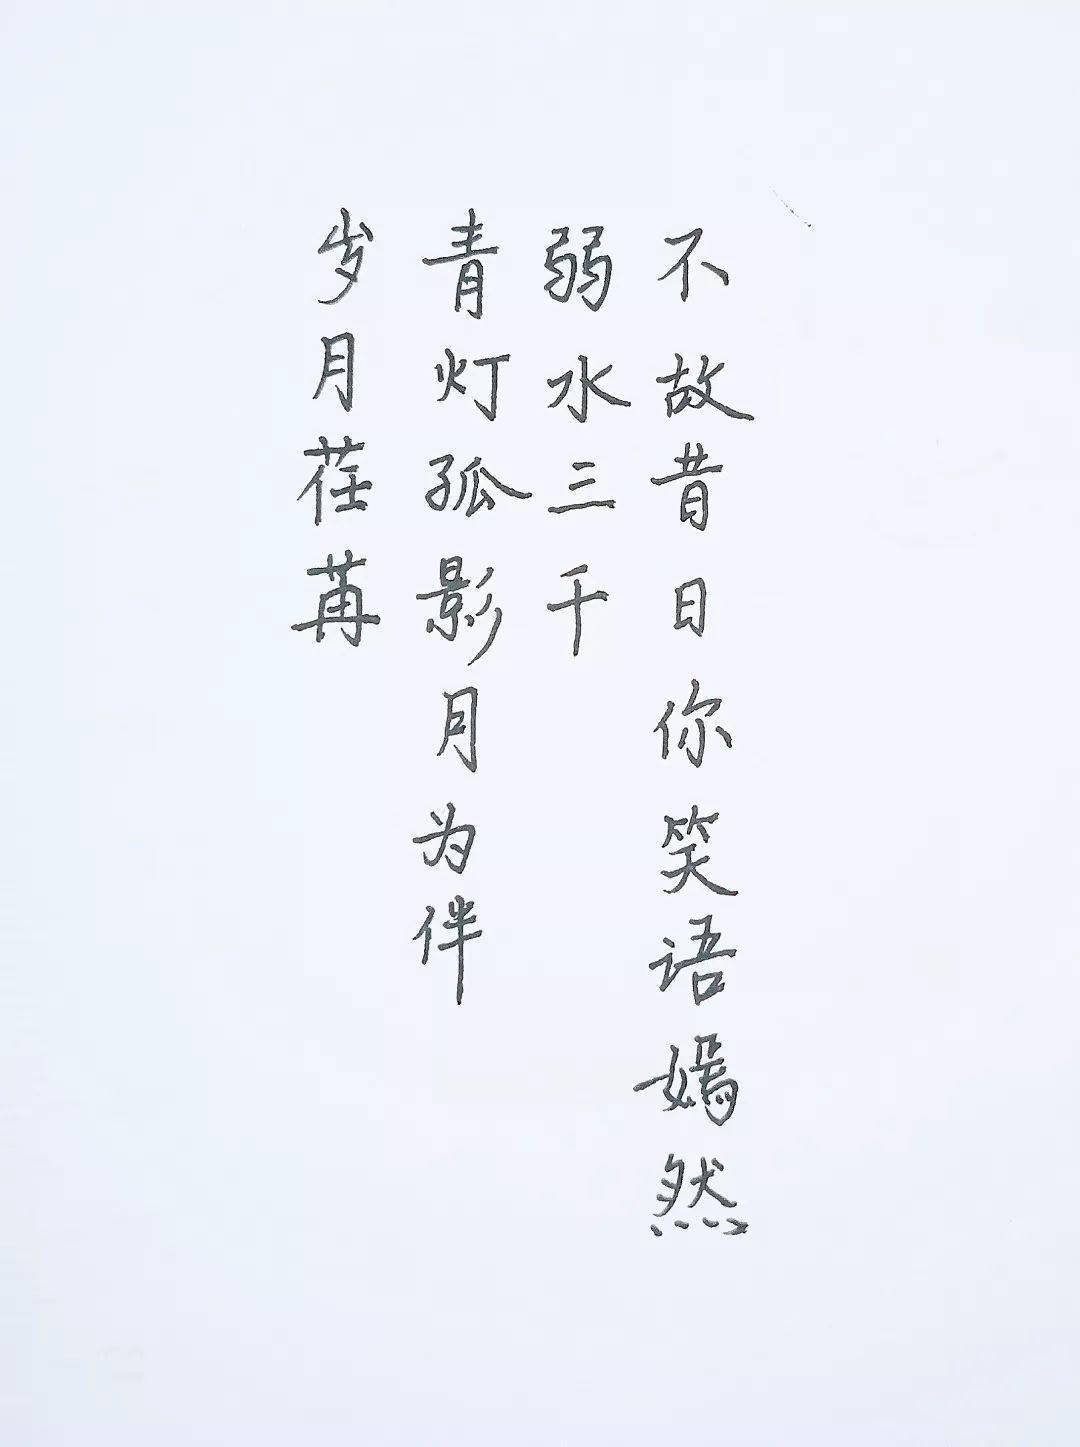 岁月荏苒
青灯孤影月为伴
弱水三千
不故昔日你笑语嫣然